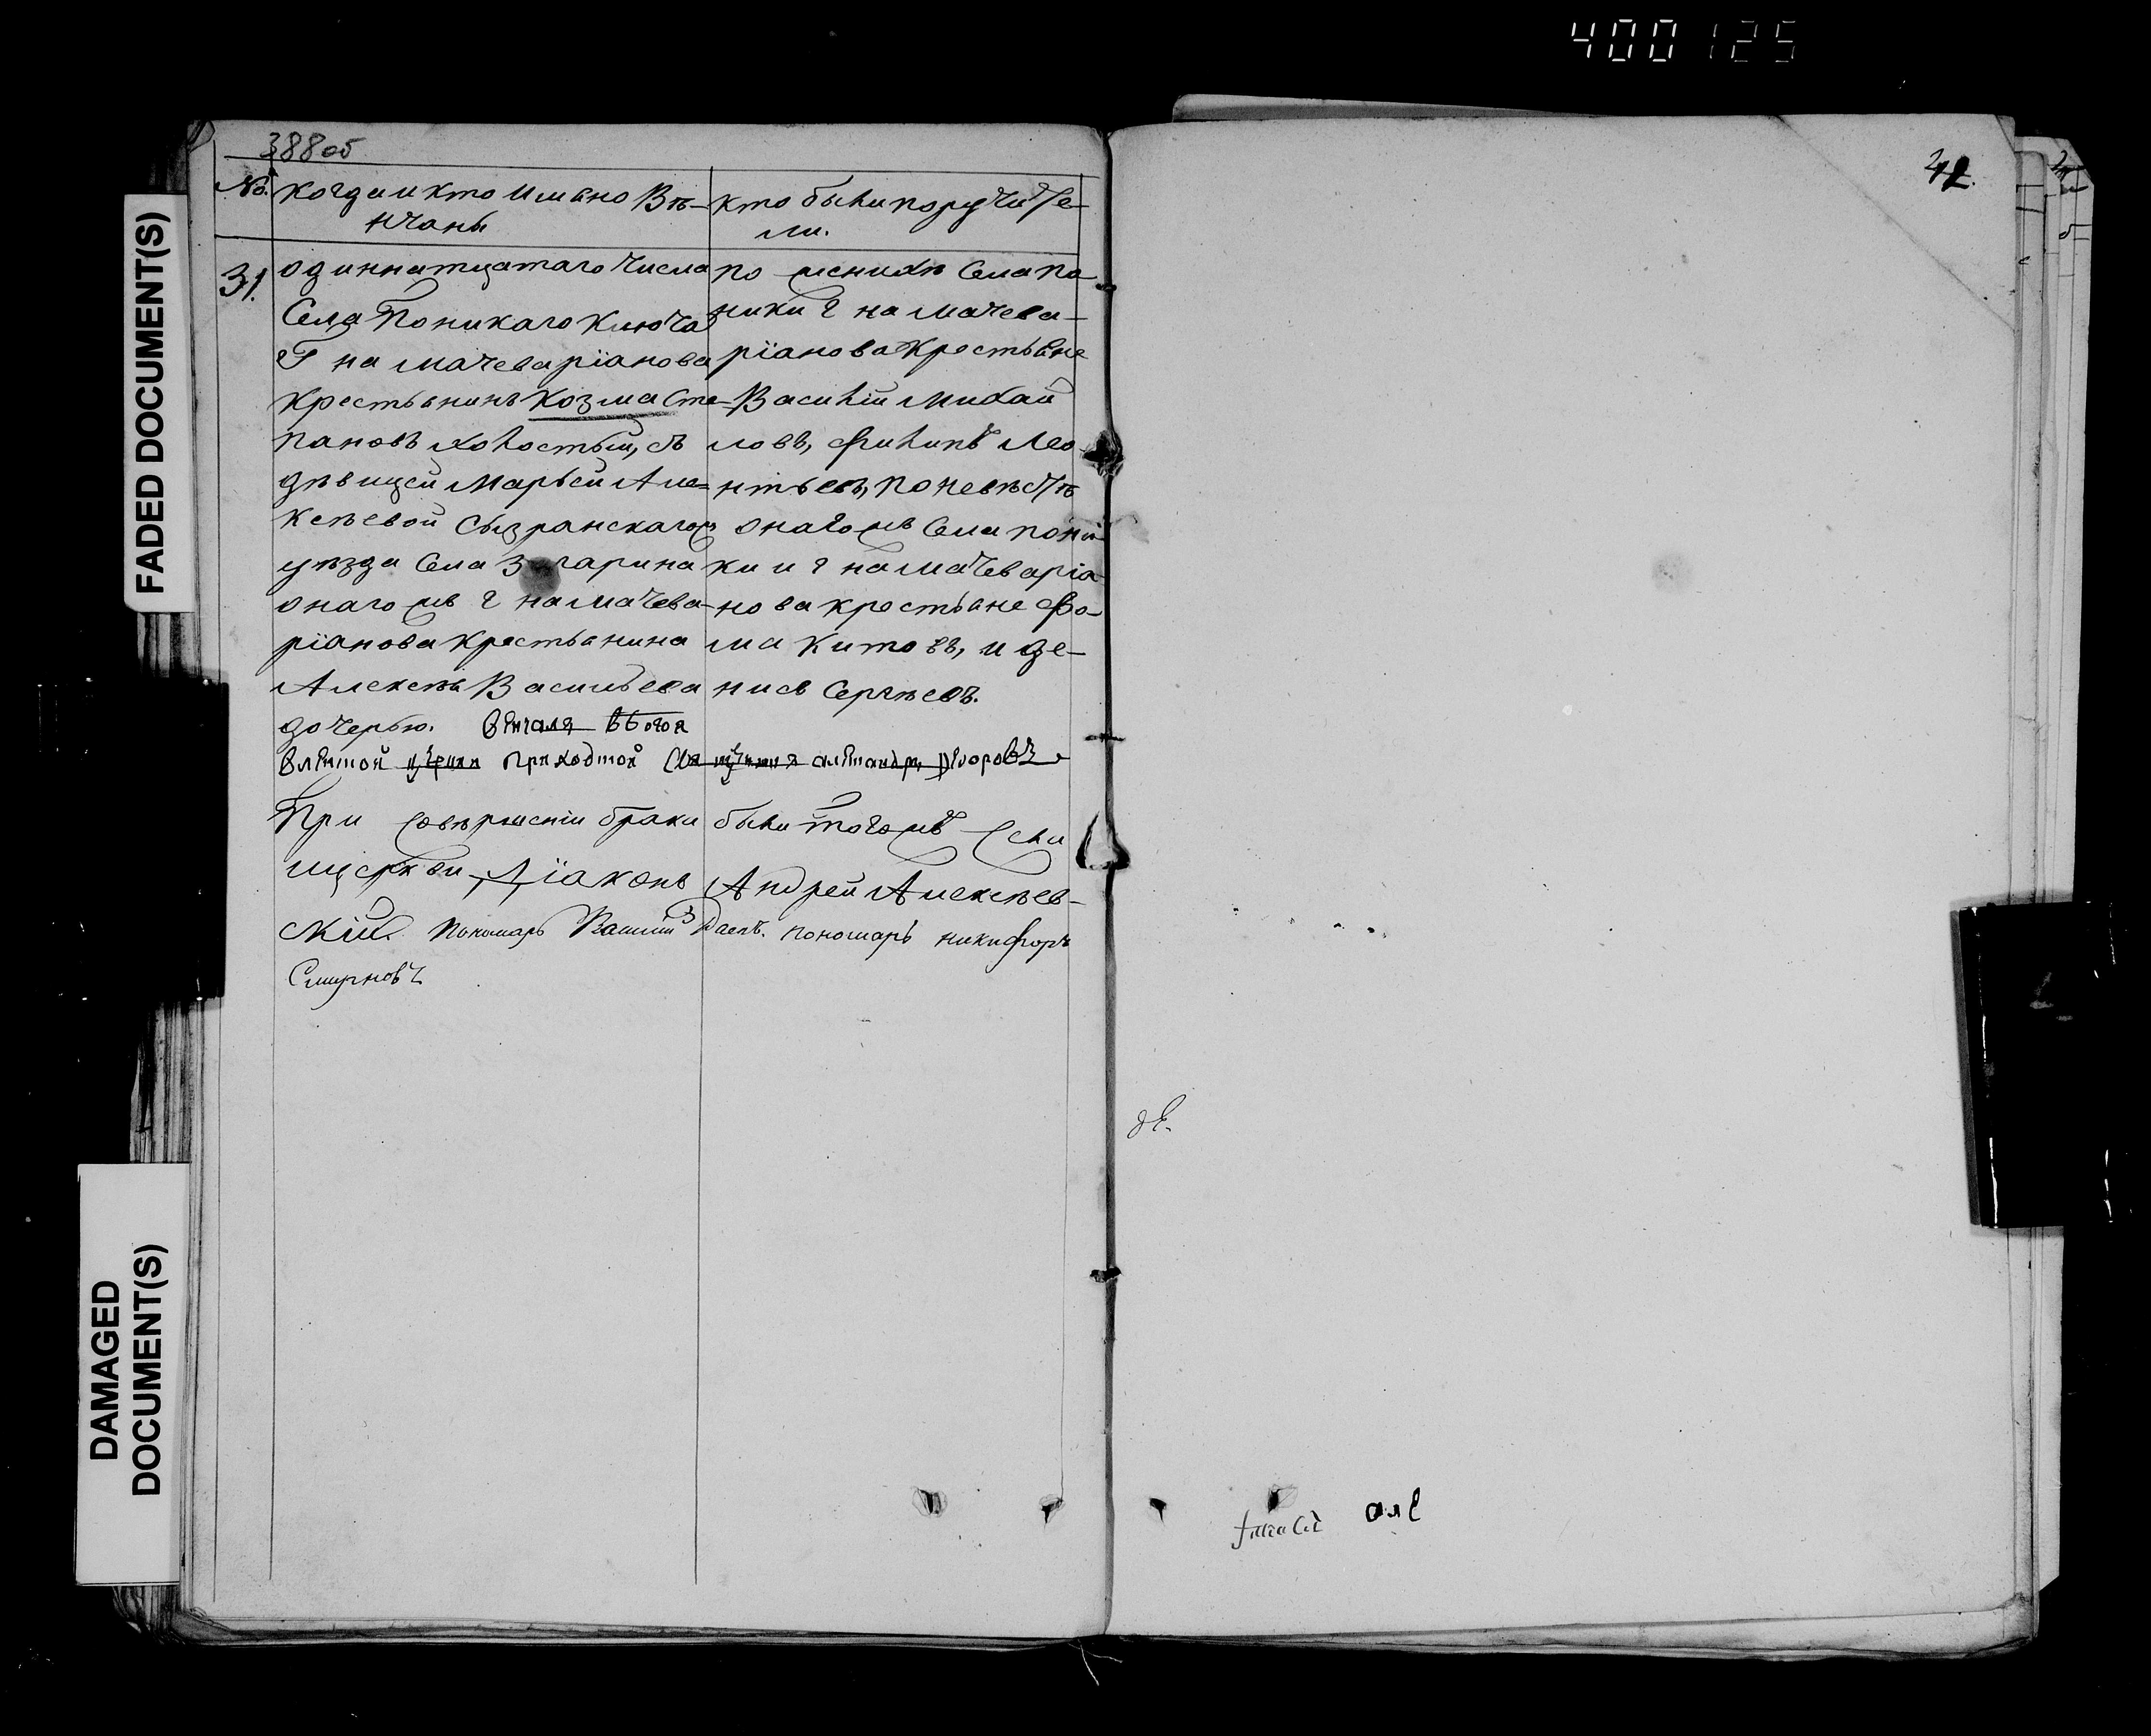 400125
FADED DOCUMENT(S)
DAMAGED
DOCUMENT(S)
388об
42.
№. когда и кто имяно Вѣ-
нчаны
31. одиннатцатаго числа
Села Поникаго Ключа
Г на мачеваріанова
крестьянинъ Козма Сте-
пановъ холостый, съ
дѣвицей Марьей Але-
ксѣевой Сызранскагожъ
уѣзда Села Загарина
онагожъ г на мачева-
ріанова крестьянина
Алексѣя Васильева
дочерью.
кто были поручите-
ли.
по женихѣ Села по-
ники г на мачева-
ріанова крестьяне
Василій Михай
ловъ, Филипъ Лео-
нтьевъ, по невѣстѣ
онагожъ Села пони-
ки и г на мачеваріа-
нова крестьяне Фо-
ма Китовъ, и де-
нисъ Сергѣевъ.
При Совѣршеніи брака были тогожъ Села
церкви Діаконъ Андрей Алексѣев-
скій. Пономарь пономарь никифоръ
Смирновъ